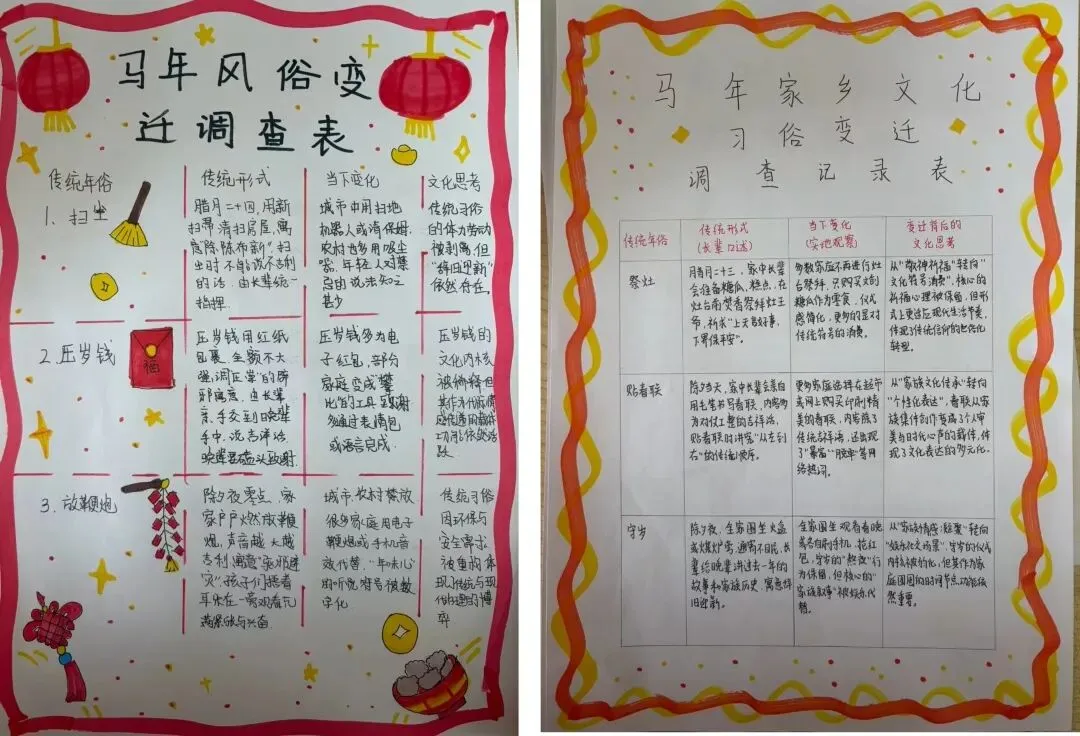 马年风俗变
迁调查表
传统年俗
传统形式
当下变化
文化思考
1、扫尘
腊月二十四,用新
扫帚清扫房屋,寓
意除陈布新",扫
出时不能说不吉利
的话,由长辈统一
指挥.
城市中用扫地
机器人或请保姆,
农村也多用吸尘
器,年轻人对禁
忌的说法知之
甚少
传统习俗
的体力劳动
被剥离,但
"辞旧迎新"
依然存在.
2、压岁钱
福
压岁钱用红纸
包裹,金额不大
强调压祟"的辟
邪寓意,由长辈
亲手交到晚辈
手中,说吉祥话
晚辈磕头致谢.
压岁钱多为电
子红包,部分
家庭变成"攀
比"的工具,致谢
多通过表情包
或语言完成.
压岁钱的
文化内核
被稀释但
其作为代际情
感传递的载体
功能依然活
跃
3、放鞭炮
除夕夜零点,家
家户户燃放鞭
炮,声音越大越
吉利,寓意"驱邪避
灾",孩子们捂着
耳朵在一旁观看充
满乐与兴奋
城市、农村禁放
很多家庭用电子
鞭炮或手机音
效代替,"年味儿"
的听觉符号被数
字化
传统习俗
因环保与
安全需求
被重构体
现传统与现
代的博
弈
马年家乡文化
习俗变迁
调查记录表
传统年俗
传统形式
(长辈口述)
当下变化
(实地观察)
变迁背后的
文化思考
祭灶
腊月二十三,家中长辈
会准备糖瓜,糕点,在
灶台前焚香祭拜灶王
爷,祈求"上天言好事,
下界保平安".
多数家庭不再进行灶
台祭拜,只购买文创
糖瓜作为零食,仪式
感简化,更多的是对
传统符号的消费.
从"敬神祈福"转向"
文化符号消费",核心的
祈福心理被保留,但形
式上更适应现代生活节奏,
体现了传统信仰的世俗化
转型.
贴春联
除夕当天,家中长辈会亲自
用毛笔书写春联,内容多
为对仗工整的吉祥话,
贴春联时讲究"从右到
右"的传统顺序.
更多家庭选择在超市
或网上购买印刷精
美的春联,内容除了
传统吉祥语,还出现
了"暴富""脱单"等网
络热词.
从"家族文化传承"转向
"个性化表达",春联从家
族集体创作变为了个人审
美与时代心声的载体,体
现了文化表达的多元化.
守岁
除夕夜,全家围坐火盆
或煤炉旁,通宵不眠,长
辈给晚辈讲过去一年的
故事和家族历史,寓意辞
旧迎新.
全家围坐观看春晚
或各自刷手机、抢红
包,守岁的"熬夜"行
为保留,但核心的"
家族叙事"被娱乐代
替.
从"家族情感凝聚"转向
"娱乐社交场景",守岁的仪式
内核被淡化,但其作为家
庭团圆的时间节点功能依
然重要.